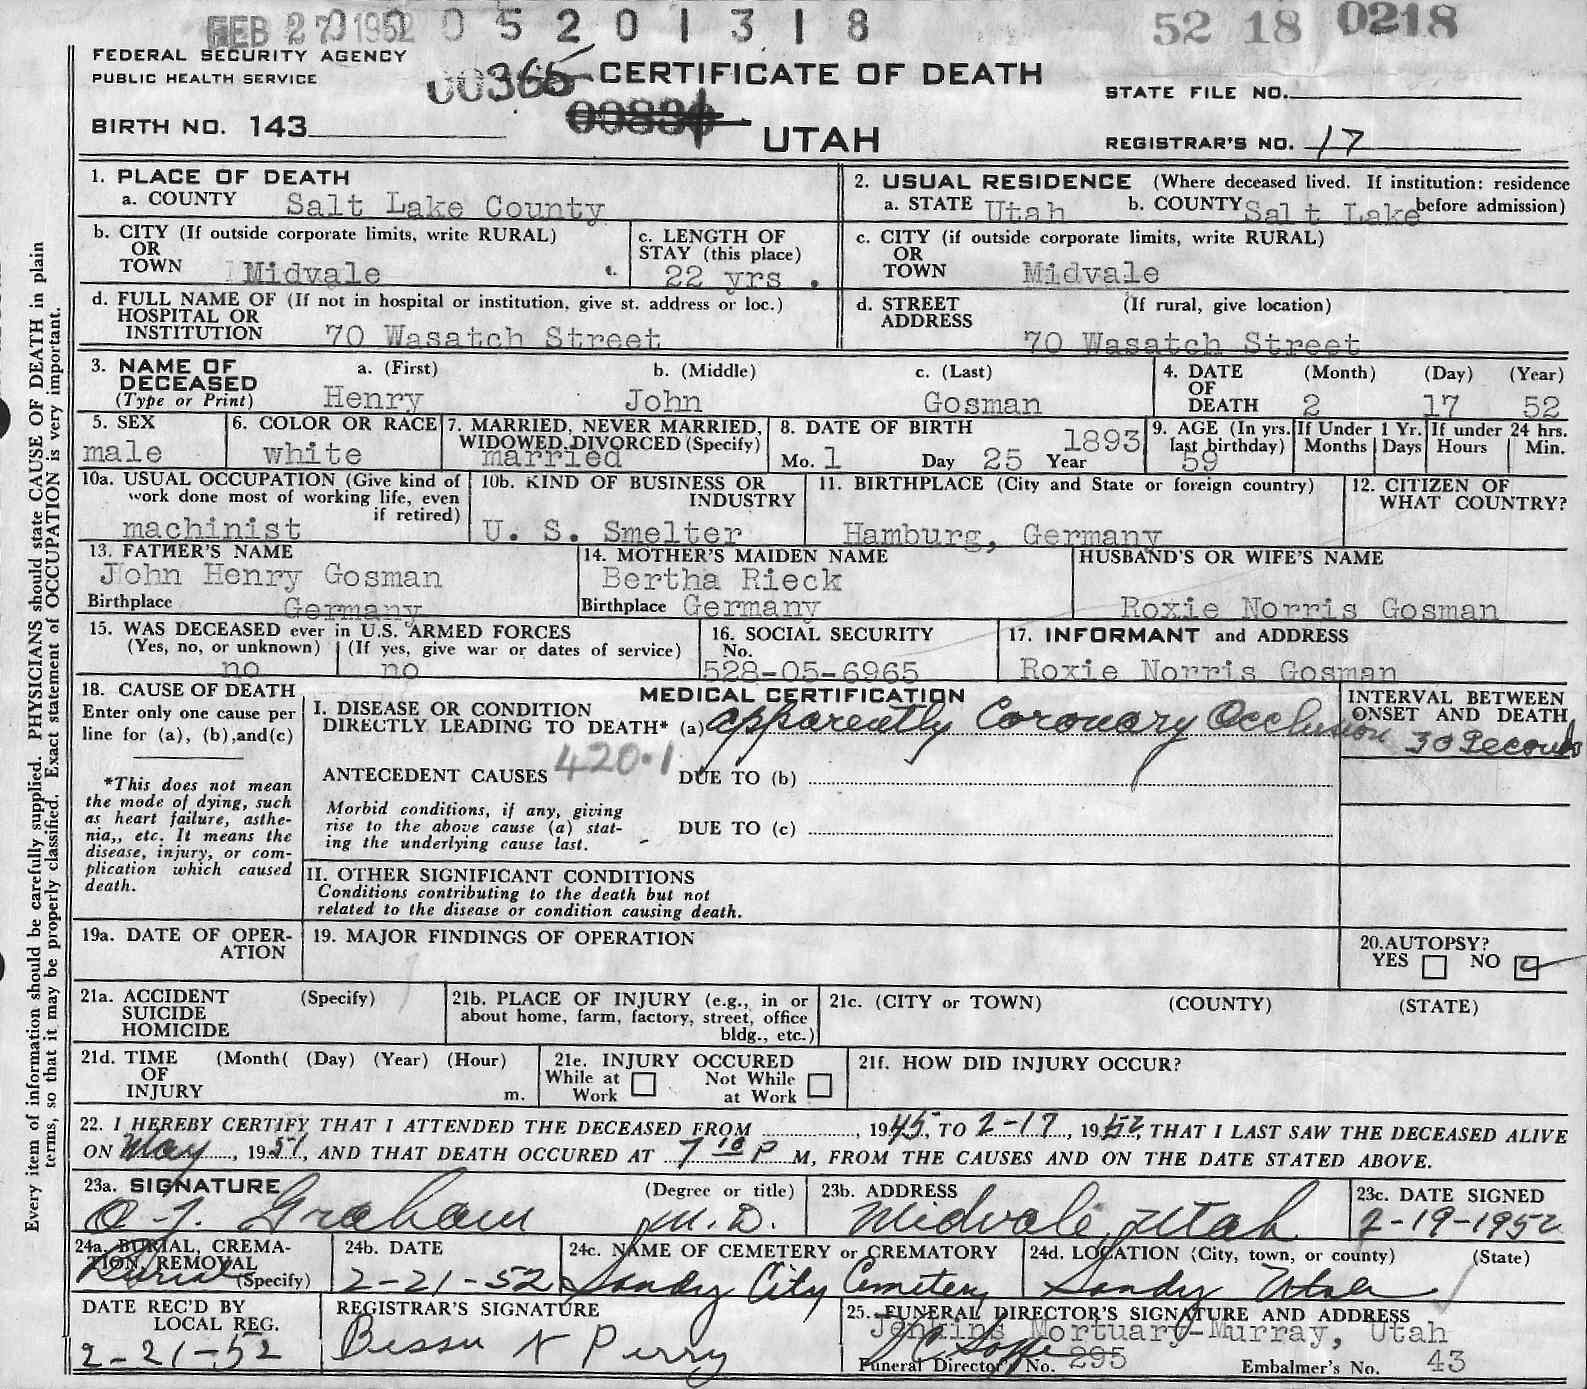 FEB 27 1952 0 5 2 0 1 3 1 8 52 18 0218
FEDERAL SECURITY AGENCY
PUBLIC HEALTH SERVICE
00365 CERTIFICATE OF DEATH
STATE FILE NO.
BIRTH NO. 143
UTAH
REGISTRAR'S NO. 17
Every item of information should be carefully supplied. PHYSICIANS should state CAUSE OF DEATH in plain
terms, so that it may be properly classified. Exact statement of OCCUPATION is very important.
1. PLACE OF DEATH
a. COUNTY Salt Lake County
2. USUAL RESIDENCE (Where deceased lived. If institution: residence
a. STATE Utah b. COUNTY Salt Lake before admission)
b. CITY (If outside corporate limits, write RURAL)
OR
TOWN Midvale
c. LENGTH OF
STAY (this place)
22 yrs.
c. CITY (if outside corporate limits, write RURAL)
OR
TOWN Midvale
d. FULL NAME OF (If not in hospital or institution, give st. address or loc.)
HOSPITAL OR
INSTITUTION 70 Wasatch Street
d. STREET (If rural, give location)
ADDRESS
70 Wasatch Street
3. NAME OF a. (First) b. (Middle) c. (Last)
DECEASED
(Type or Print) Henry John Gosman
4. DATE (Month) (Day) (Year)
OF
DEATH 2 17 52
5. SEX
male
6. COLOR OR RACE
white
7. MARRIED, NEVER MARRIED,
WIDOWED, DIVORCED (Specify)
married
8. DATE OF BIRTH 1893
Mo. 1 Day 25 Year
9. AGE (In yrs.
last birthday)
59
If Under 1 Yr.
Months Days
If under 24 hrs.
Hours Min.
10a. USUAL OCCUPATION (Give kind of
work done most of working life, even
if retired)
machinist
10b. KIND OF BUSINESS OR
INDUSTRY
U. S. Smelter
11. BIRTHPLACE (City and State or foreign country)
Hamburg, Germany
12. CITIZEN OF
WHAT COUNTRY?
13. FATHER'S NAME
John Henry Gosman
Birthplace Germany
14. MOTHER'S MAIDEN NAME
Bertha Rieck
Birthplace Germany
HUSBAND'S OR WIFE'S NAME
Roxie Norris Gosman
15. WAS DECEASED ever in U.S. ARMED FORCES
(Yes, no, or unknown) (If yes, give war or dates of service)
no no
16. SOCIAL SECURITY
No.
528-05-6965
17. INFORMANT and ADDRESS
Roxie Norris Gosman
18. CAUSE OF DEATH
Enter only one cause per
line for (a), (b),and(c)
*This does not mean
the mode of dying, such
as heart failure, asthe-
nia,, etc. It means the
disease, injury, or com-
plication which caused
death.
MEDICAL CERTIFICATION
I. DISEASE OR CONDITION
DIRECTLY LEADING TO DEATH* (a) apparently Coronary Occlusion
420.1
ANTECEDENT CAUSES DUE TO (b)
Morbid conditions, if any, giving
rise to the above cause (a) stat-
ing the underlying cause last.
DUE TO (c)
INTERVAL BETWEEN
ONSET AND DEATH
30 Seconds
II. OTHER SIGNIFICANT CONDITIONS
Conditions contributing to the death but not
related to the disease or condition causing death.
19a. DATE OF OPER-
ATION
19. MAJOR FINDINGS OF OPERATION
20.AUTOPSY?
YES NO
21a. ACCIDENT (Specify)
SUICIDE
HOMICIDE
21b. PLACE OF INJURY (e.g., in or
about home, farm, factory, street, office
bldg., etc.)
21c. (CITY or TOWN) (COUNTY) (STATE)
21d. TIME (Month( (Day) (Year) (Hour)
OF
INJURY m.
21e. INJURY OCCURED
While at Not While
Work at Work
21f. HOW DID INJURY OCCUR?
22. I HEREBY CERTIFY THAT I ATTENDED THE DECEASED FROM , 1945, TO 2-17, 1952, THAT I LAST SAW THE DECEASED ALIVE
ON May, 1951, AND THAT DEATH OCCURED AT 7 10 P M, FROM THE CAUSES AND ON THE DATE STATED ABOVE.
23a. SIGNATURE (Degree or title)
Graham M.D.
23b. ADDRESS
Midvale, Utah
23c. DATE SIGNED
2-19-1952
24a. BURIAL, CREMA-
TION, REMOVAL
(Specify)
Burial
24b. DATE
2-21-52
24c. NAME OF CEMETERY or CREMATORY
Sandy City Cemetery
24d. LOCATION (City, town, or county) (State)
Sandy Utah
DATE REC'D BY
LOCAL REG.
2-21-52
REGISTRAR'S SIGNATURE
Bessie N Perry
25. FUNERAL DIRECTOR'S SIGNATURE AND ADDRESS
Jenkins Mortuary-Murray, Utah
Funeral Director's No. 295 Embalmer's No. 43